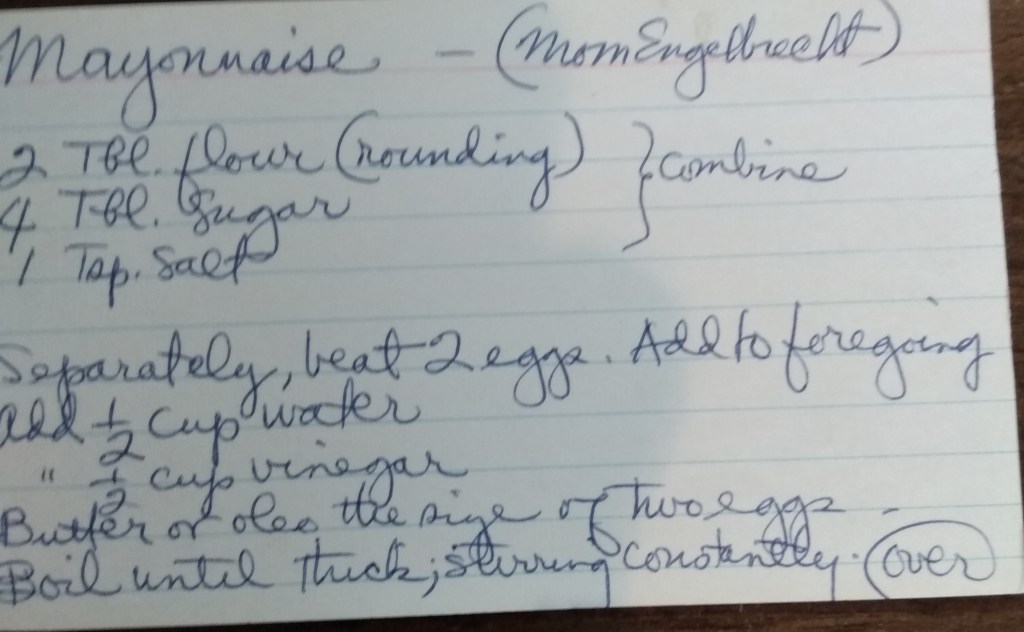 Mayonnaise - (Mom Engelbrecht)
2 Tbl. flour (rounding) } combine
4 Tbl. Sugar
1 Tsp. Salt
Separately, beat 2 eggs. Add to foregoing
add 1/2 cup water
" 1/2 cup vinegar
Butter or oleo the size of two eggs -
Boil until thick; stirring constantly. (over)